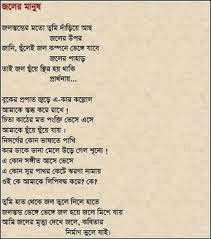 জলের মানুষ
জলস্তম্ভের মতো তুমি দাঁড়িয়ে আছ
জলের উপর
জানি, ছুঁলেই জল কম্পনে ভেঙ্গে যাবে
জলের পাহাড়
তাই জল ছুঁয়ে স্থির হয় থাকি
প্রার্থনায়...
বুকের প্রপাত জুড়ে এ-কার কল্লোল
আমাকে স্তব্ধ করে রাখে।
চিতা কাঠের মত পংক্তি ভেসে এসে
আমাকে ছুঁয়ে ছুঁয়ে যায় ।
নিসর্গের কোন ভাষাতে পাখি
কার ডাকে ডানা মেলে উড়ে গেল শূন্যে !
এ কোন সঙ্গীত আসে ভেসে
এ কোন সুর পাথর কেটে ঝরণা নামায়
ওই কে আমাকে লিপিবদ্ধ করে? কে?
তুমি হাত থেকে জল তুলে নিলে হাতে
জলস্তম্ভ ভেঙ্গে ভেঙ্গে জল হয়ে জলে মিশে যায়
আমি জলের মৃত্যু দেখে জলে, কবিতার
নির্মাণ তুলে যাই।